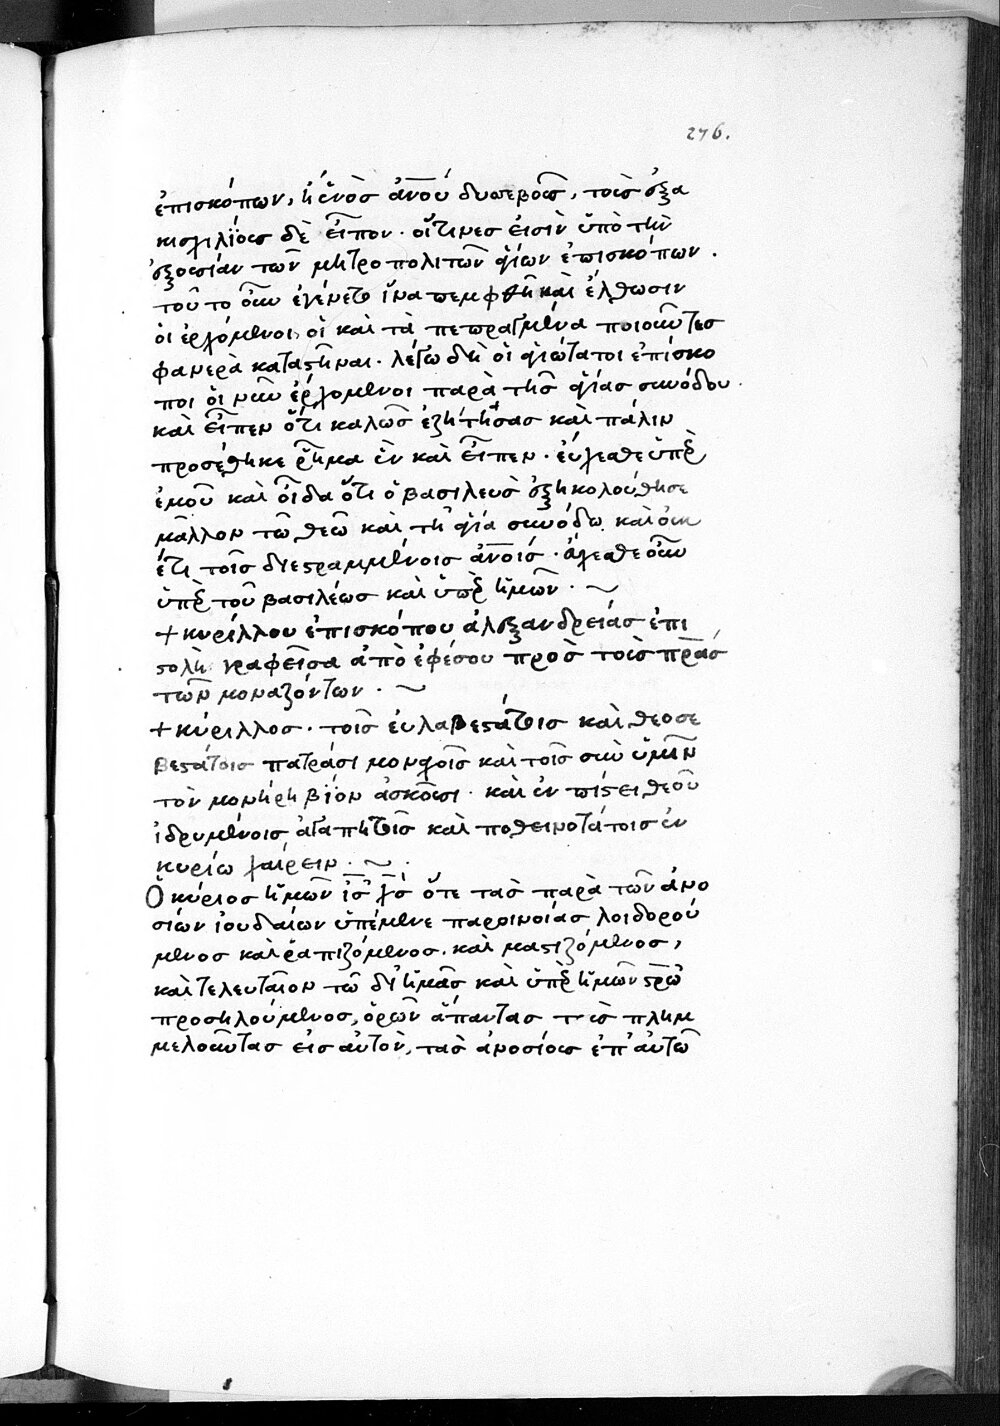 276.
ἐπισκόπων, ἢ ἑνὸς ἀνου δυσεβοῦς, τοὺς ἑξα
κισχιλίους δὲ εἶπον· οἵτινες εἰσὶν ὑπὸ τὴν
ἐξουσίαν τῶν μητροπολιτῶν ἁγίων ἐπισκόπων .
τοῦτο οὖν ἐγένετο ἵνα πεμφθῆ καὶ ἔλθωσιν
οἱ ἐρχόμενοι, οἱ καὶ τὰ πεπραγμένα ποιοῦντες
φανερὰ καταστῆναι· λέγω δὴ οἱ ἁγιώτατοι ἐπίσκο
ποι οἱ νῦν ἐρχόμενοι παρὰ τῆς ἁγίας συνόδου·
καὶ εἶπεν ὅτι καλῶς ἐζήτησας καὶ πάλιν
προσέθηκε ῥῆμα ἓν καὶ εἶπεν· εὔχεσθε ὑπὲρ
ἐμοῦ καὶ οἶδα ὅτι ὁ βασιλεὺς ἐξηκολούθησε
μᾶλλον τῶ θεῶ καὶ τῆ ἁγία συνόδω καὶ οὐκ
ἔτι τοῖς διεστραμμένοις ἀνοις· εὔχεσθε οὖν
ὑπὲρ τοῦ βασιλέως καὶ ὑπὲρ ἡμῶν· ~
+ κυρίλλου ἐπισκόπου ἀλεξανδρείας ἐπι
στολὴ γραφεῖσα ἀπὸ ἐφέσου πρὸς τοὺς πρας
τῶν μοναζόντων · ~
+ κύριλλος· τοῖς εὐλαβεστάτοις καὶ θεοσε
βεστάτοις πατράσι μοναχοῖς καὶ τοῖς σὺν ὑμῖν
τὸν μονήρη βίον ἀσκοῦσι· καὶ ἐν πίστει θεοῦ
ἱδρυμένοις ἀγαπητοῖς καὶ ποθεινοτάτοις ἐν
κυρίω χαίρειν · ~ ·
Ὁ κύριος ἡμῶν ις χς ὅτε τὰς παρὰ τῶν ἀνο
σίων ἰουδαίων ὑπέμενε παροινίας λοιδορού
μενος καὶ ῥαπιζόμενος· καὶ μαστιζόμενος,
καὶ τελευταῖον τῶ δι' ἡμᾶς καὶ ὑπὲρ ἡμῶν στρω
προσηλούμενος, ὁρῶν ἅπαντας τοὺς πλημ
μελοῦντας εἰς αὐτὸν, τὰς ἀνοσίους ἐπ' αὐτῶ